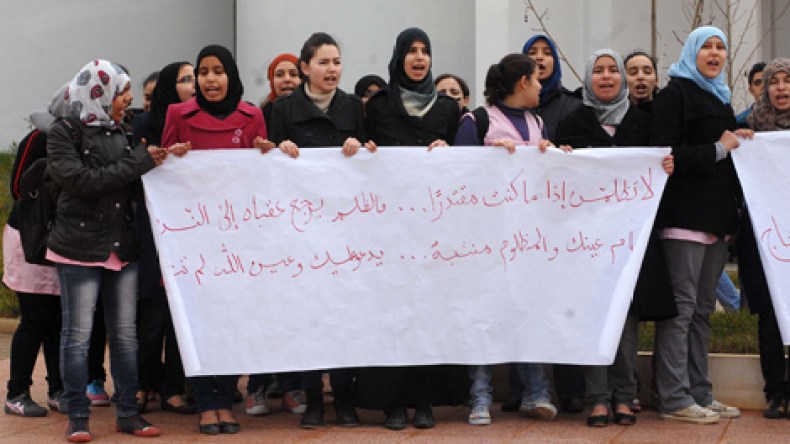 لا تظلمن إذا ما كنت مقتدرًا... فالظلم يرجع عقباه إلى الند
نام عينك والمظلوم منتبه... يدعو عليك وعين الله لم تنم